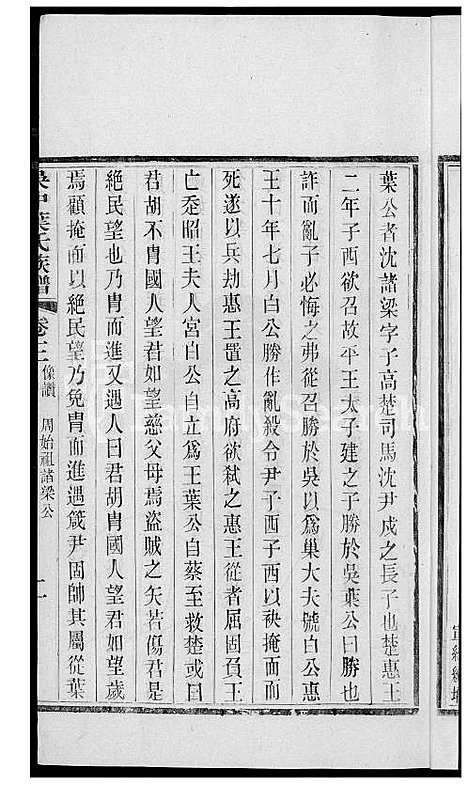 葉公者沈諸梁字子高楚司馬沈尹戍之長子也楚惠王
二年子西欲召故平王太子建之子勝於吳葉公曰勝也
詐而亂子必悔之弗從召勝於吳以爲巢大夫號白公惠
王十年七月白公勝作亂殺令尹子西子西以袂掩面而
死遂以兵劫惠王置之高府欲弑之惠王從者屈固負王
亡走昭王夫人宮白公自立爲王葉公自蔡至救楚或曰
君胡不胄國人望君如望慈父母焉盜賊之矢若傷君是
絶民望也乃胄而進又遇人曰君胡胄國人望君如望歲
焉顧掩面以絶民望乃免胄而進遇箴尹固帥其屬從葉
吳中葉氏族譜 卷三 像讚 周始祖諸梁公 二